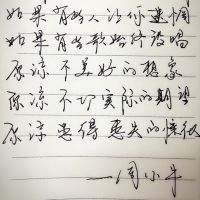 如果有些人让你迷惘
如果有些歌始终没唱
原谅不美好的想象
原谅不切实际的期望
原谅患得患失的惶
——周小牛